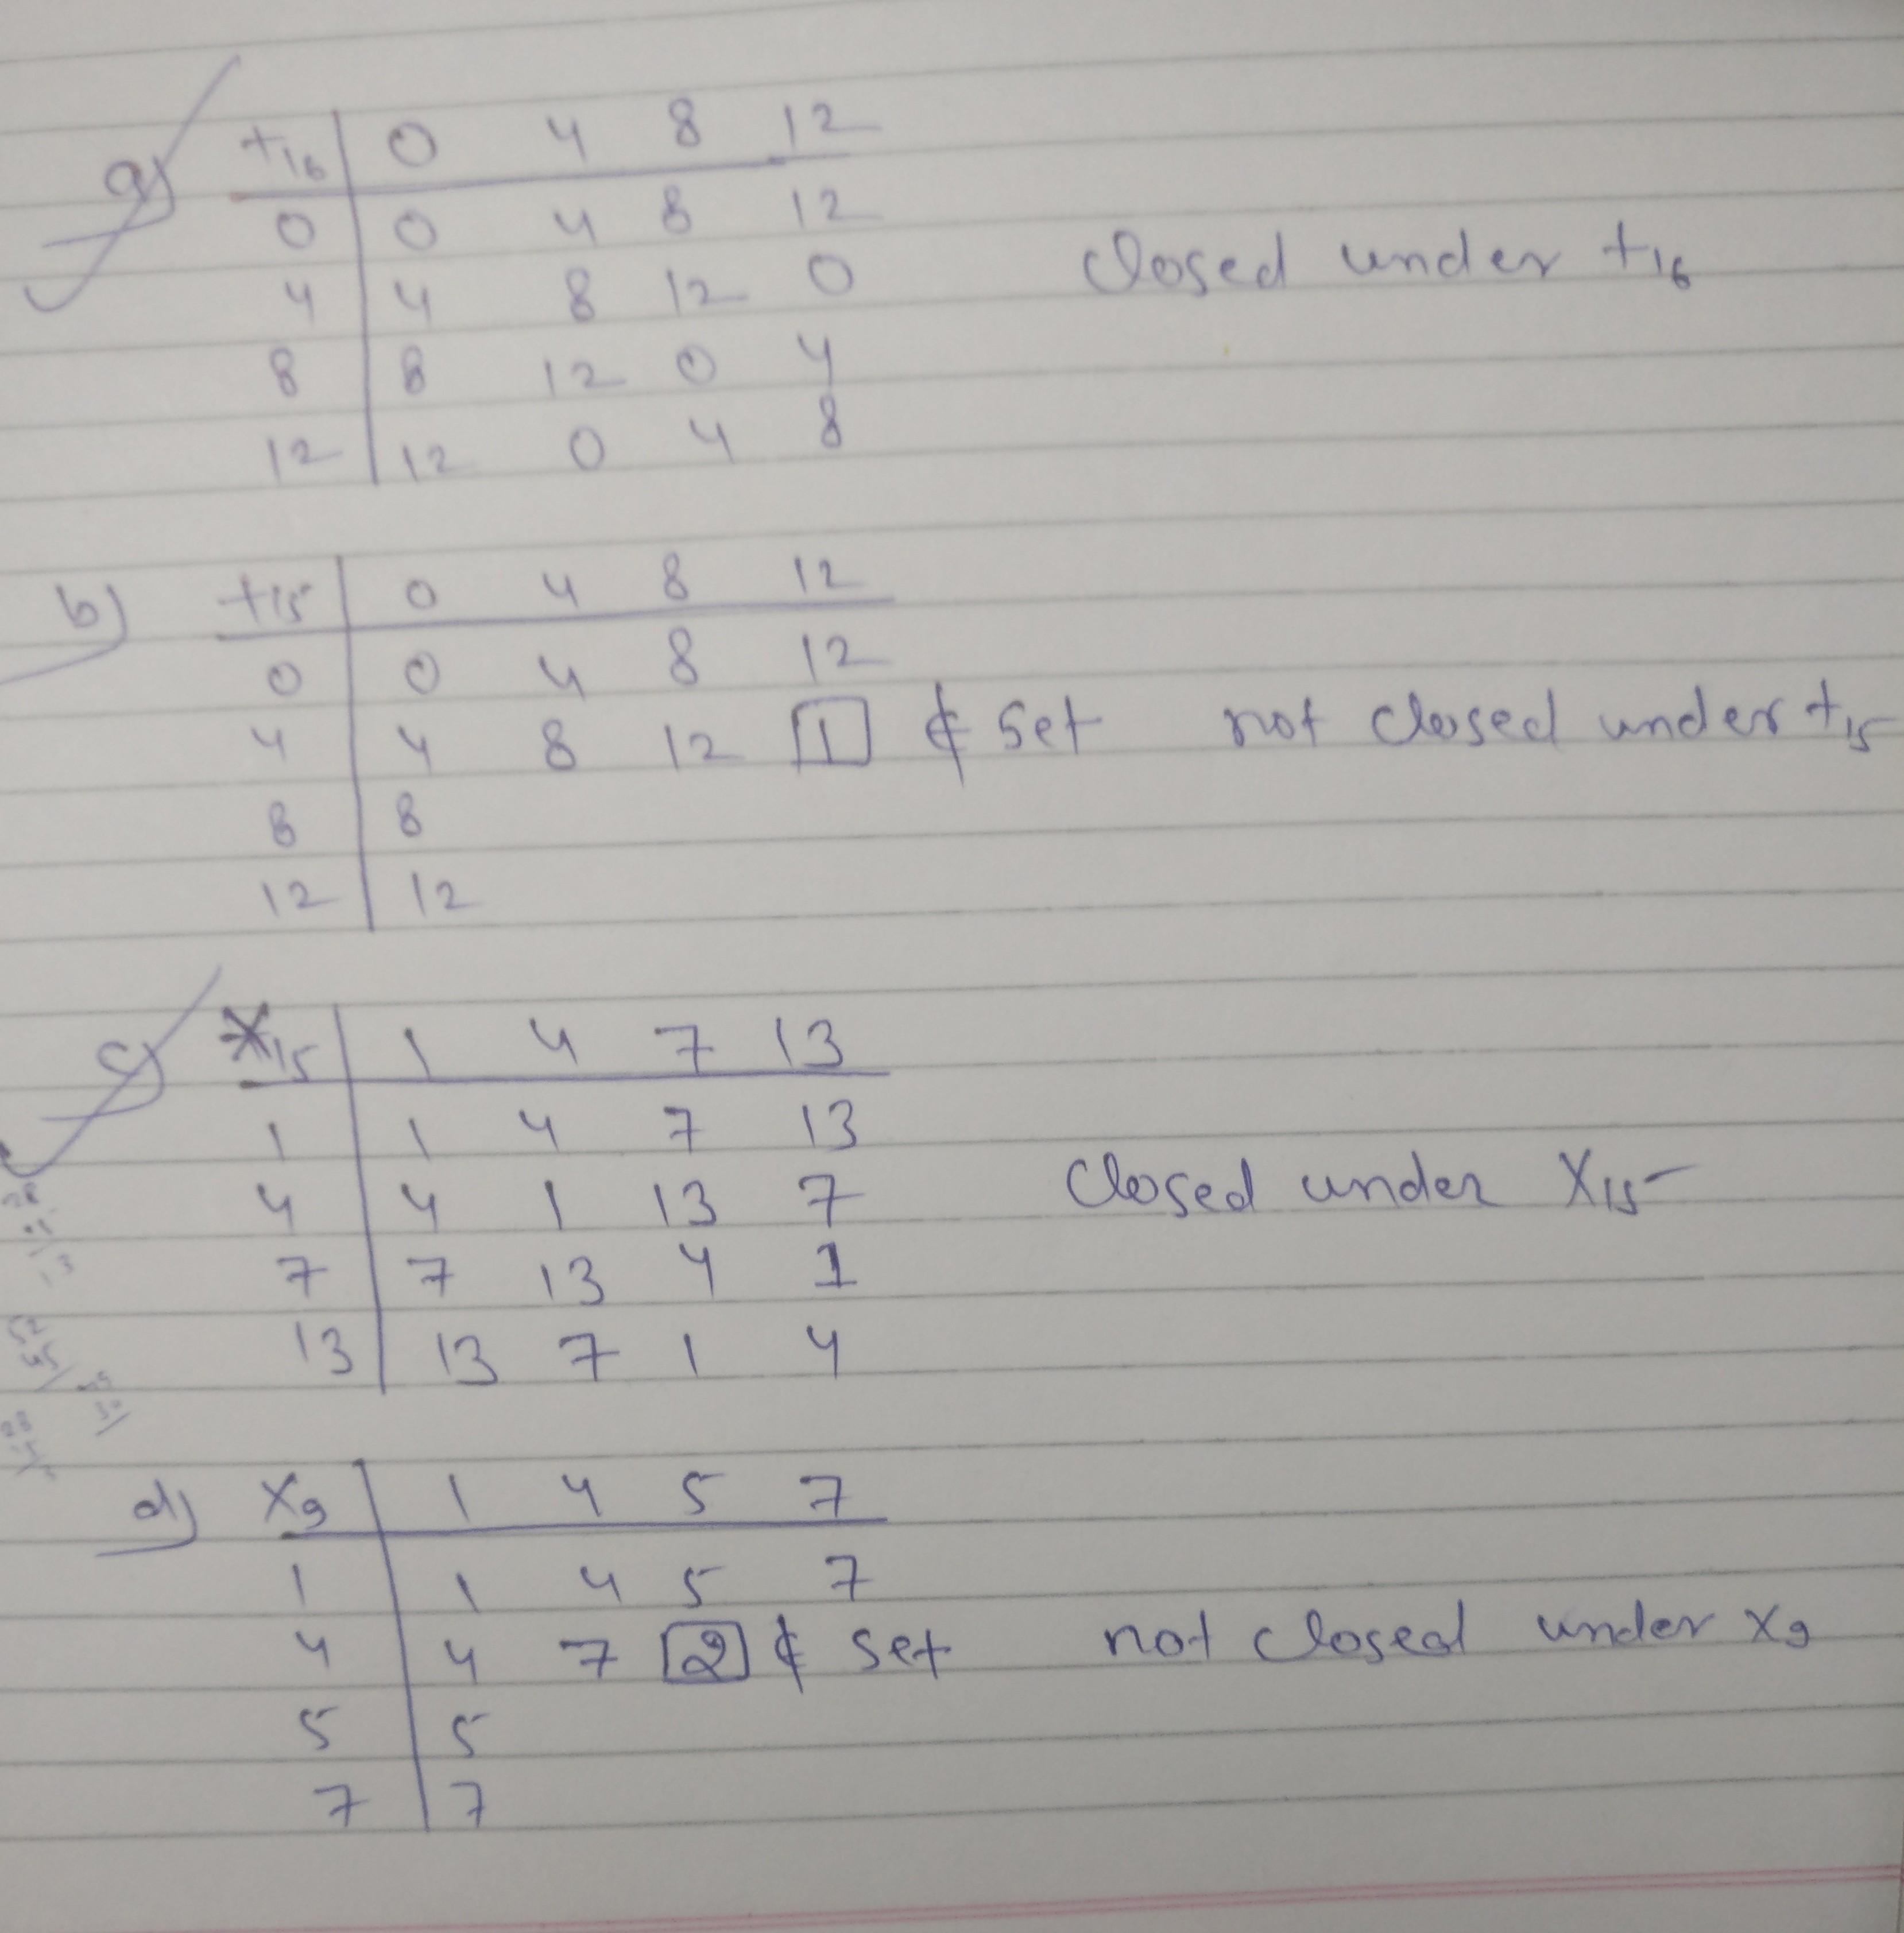 a) +16 | 0 4 8 12
0 | 0 4 8 12
4 | 4 8 12 0 Closed under +16
8 | 8 12 0 4
12 | 12 0 4 8
b) +15 | 0 4 8 12
0 | 0 4 8 12
4 | 4 8 12 1 ∉ Set not closed under +15
8 | 8
12 | 12
c) ×15 | 1 4 7 13
1 | 1 4 7 13
4 | 4 1 13 7 Closed under ×15
7 | 7 13 4 1
13 | 13 7 1 4
d) ×9 | 1 4 5 7
1 | 1 4 5 7
4 | 4 7 2 ∉ set not closed under ×9
5 | 5
7 | 7